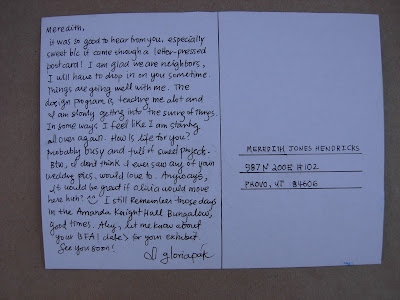 Meredith,
it was so good to hear from you, especially
sweet b/c it came through a letter-pressed
postcard! I am glad we are neighbors,
I will have to drop in on you sometime.
Things are going well with me. The
design program is teaching me alot and
I am slowly getting into the swing of things.
In some ways I feel like I am starting
all over again. How is life for you?
Probably busy and full of sweet projects.
Btw, I don't think I ever saw any of your
wedding pics, would love to. Anyways,
it would be great if olivia would move
here huh? I still remember those days
in the Amanda Knight Hall Bungalow,
good times. Okay, let me know about
your BFA dates for your exhibit.
See you soon!
gloriapak
MEREDITH JONES HENDRICKS
987 N 200 E # 102
PROVO, UT 84606